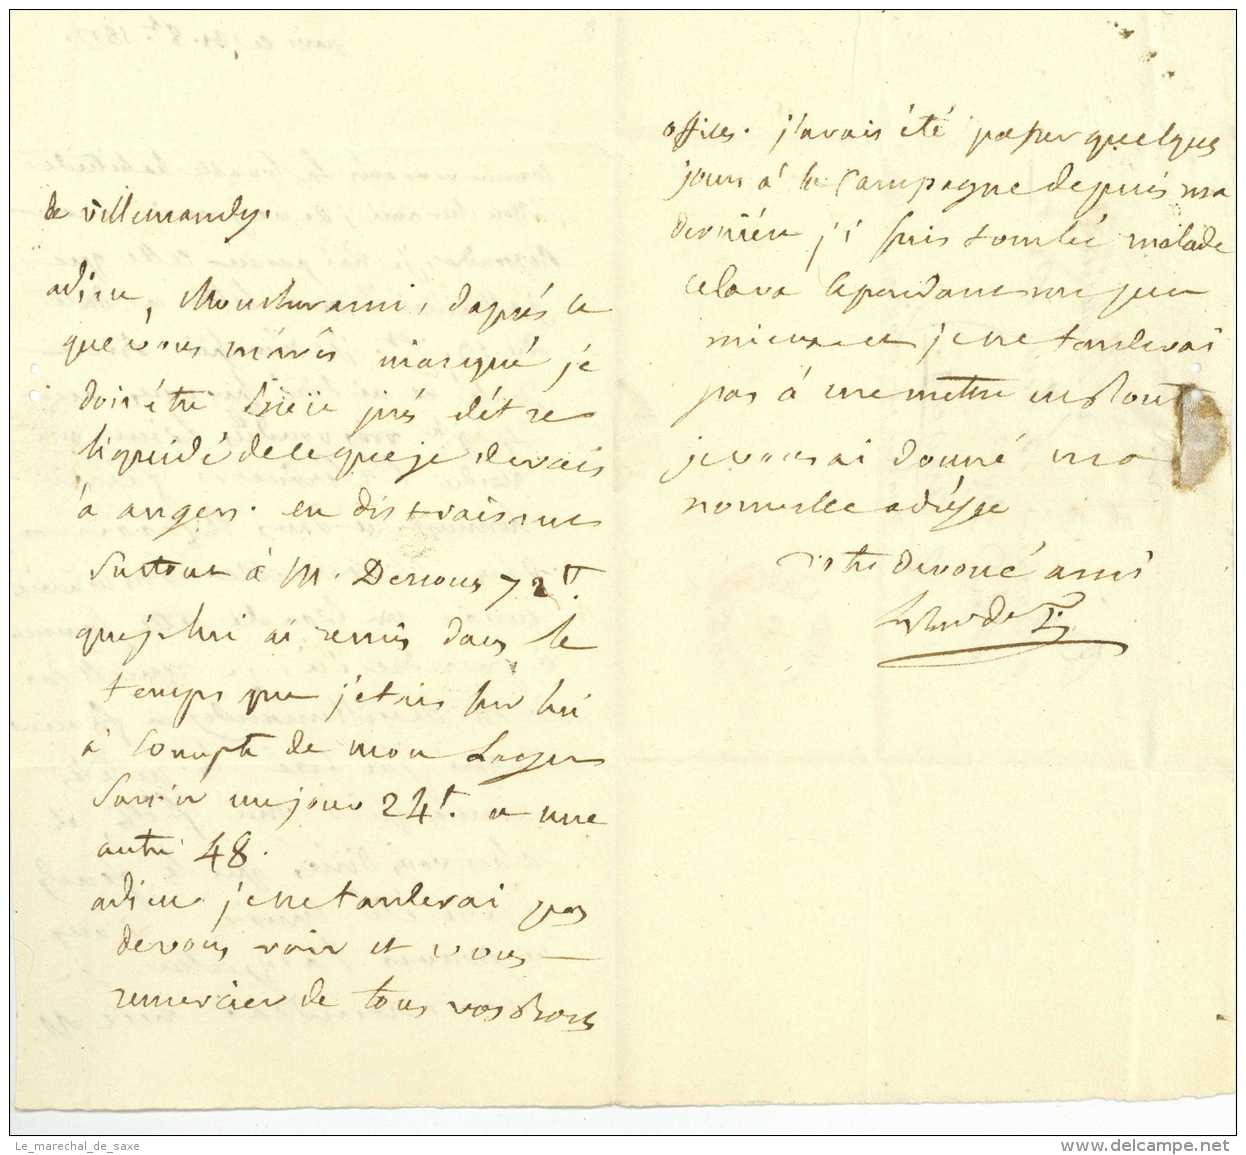 de Villemandy.
adieu, Mon cher ami, d'aprés ce
que vous m'avés marqué je
dois étre bien prés d'étre
liquidé de ce que je devais
à angers. en distraisant
surtout à M. Derrous 72tt.
que je lui ai remis dans le
temps que j'etais sur lui
à compte de mon Loyer
savoir un jour 24t. et une
autre 48.
adieu je ne tarderai pas
de vous voir et vous
remercier de tous vos bons
offices. j'avais été passer quelques
jours à la Campagne depuis ma
derniére j'i suis tombé malade
cela va cependant un peu
mieux et je ne tarderai
pas à me mettre en Route
je vous ai donné ma
nouvelle adresse
votre devoué ami
Le_marechal_de_saxe
www.delcampe.net